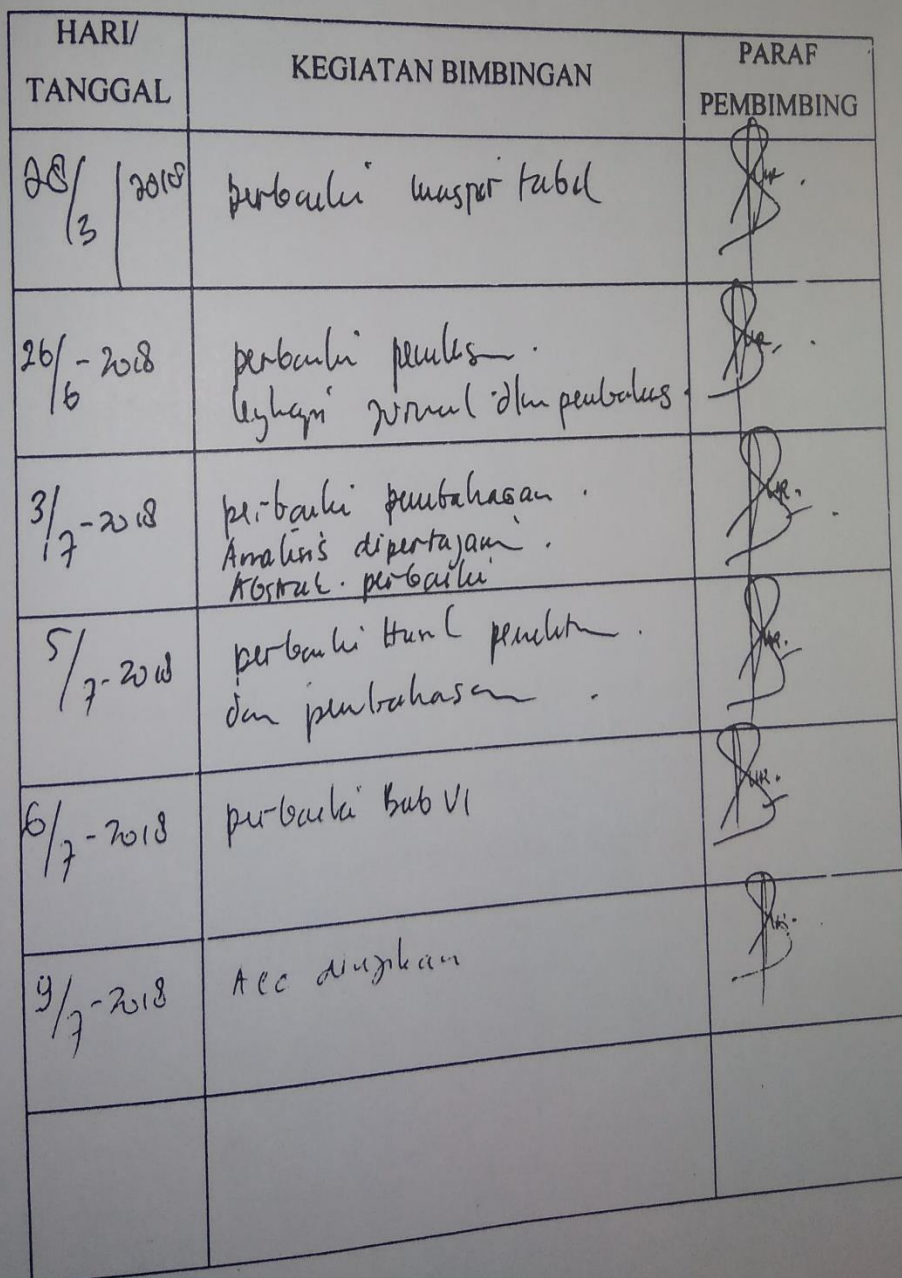 HARI/
TANGGAL
KEGIATAN BIMBINGAN
PARAF
PEMBIMBING
28/3/2018
perbaiki tabel
26/6-2018
perbaiki penulisan.
lengkapi jurnal dlm pembahas.
3/7-2018
perbaiki pembahasan.
Analisis dipertajam.
Abstrak. perbaiki
5/7-2018
perbaiki Hasil penelitian.
dan pembahasan.
6/7-2018
perbaiki Bab VI
9/7-2018
Acc diujikan